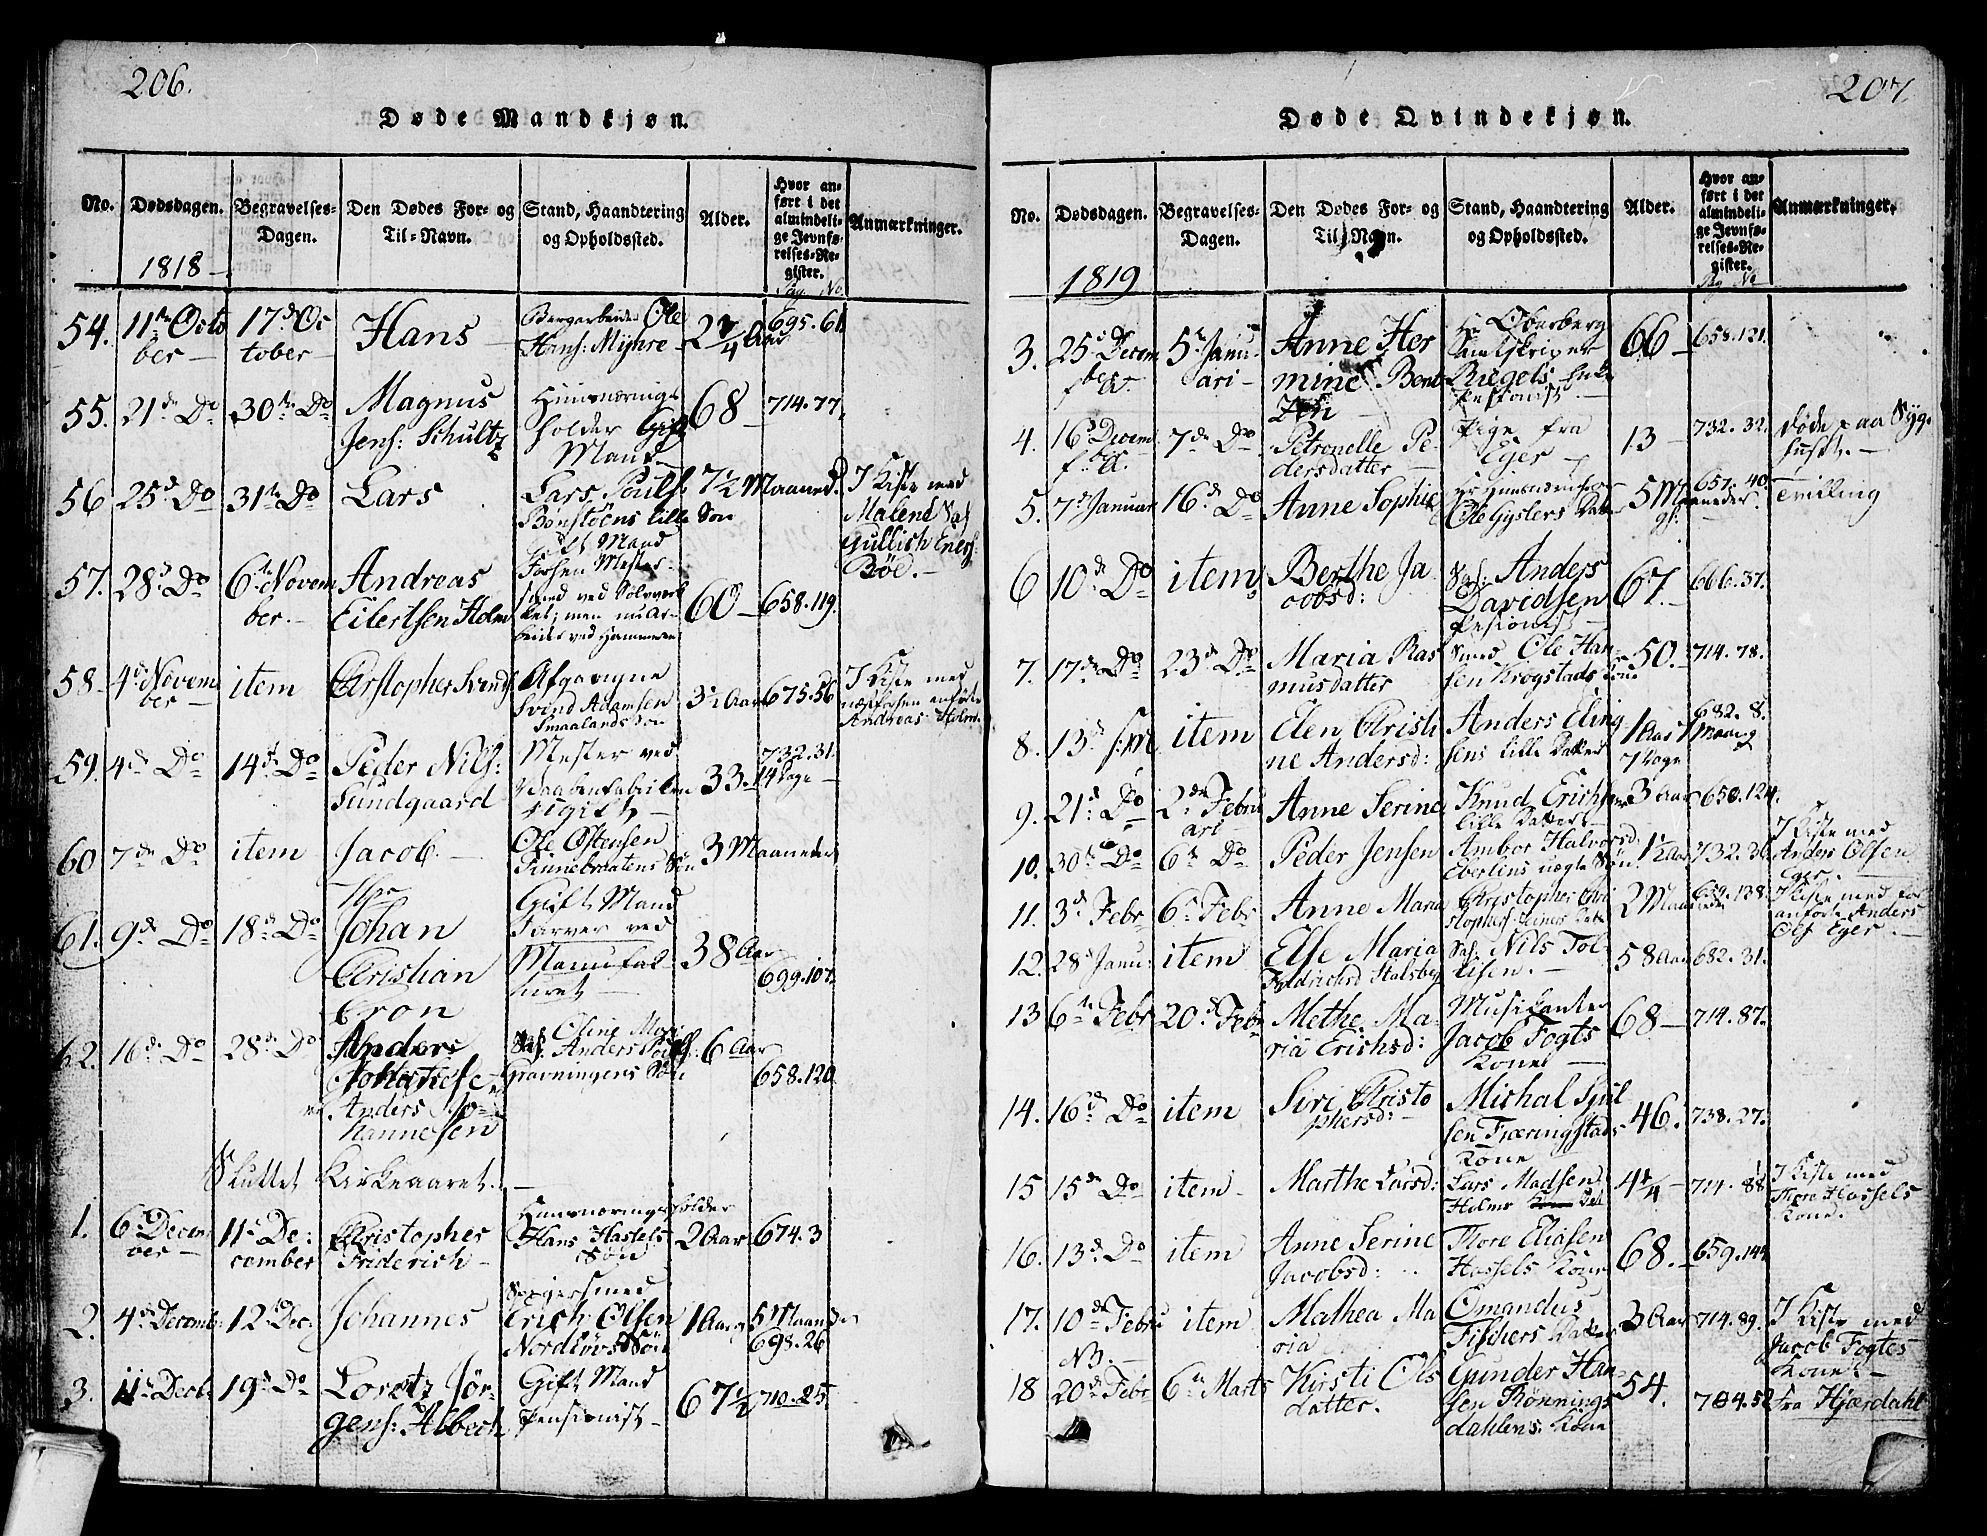 206.
Døde Mandkjøn.
No.
Dødsdagen.
Begravelses-
Dagen.
Den Dødes For- og
Til-Navn.
Stand, Haandtering
og Opholdssted.
Alder.
Hvor an-
ført i det
almindeli-
ge Jevnfø-
relses-Re-
gister.
Pag No
Anmærkninger.
1818
54. 11te Octo
ber
17de Oc
tober
Hans
Bergarbeider Ole
Hans: Myhre
695. 61
55. 21de Do
30te Do
Magnus
Jens: Schultz
holder Gift
Mand
68
714. 77.
56 25de Do
31te Do
Lars
Lars Pouls:
lille Søn
7 1/2 Maaned
I Kiste med
Malene
57. 28de Do
6te Novem
ber.
Andreas
Eilertsen Holm
Gift Mand
Forhen Mester-
smed ved Sølvver
ket; men nu Ar-
beider ved Hammeren
60
658. 119.
58 4de Novem
ber
item
Christopher Svends
Afgangne
Svend Adamsen
Smaalands Søn
3 1/2 Aar
675. 56
I Kiste med
næstforhen anførte
Andreas Holm
59. 4de Do
14de Do
Peder Nils:
Sundgaard
Mester ved
Vaabenfabriken
gift
33. 14 Dage
732. 31
60 7de Do
item
Jacob.
Ole Ostensen
Søn
3 Maaneder
61. 9de Do
18de Do
Hr
Johan
Christian
Cron
Gift Mand
Farver ved
Manufak
turet
38 Aar
699. 107.
62. 16de Do
28de Do
Anders
Anders Jo-
hannesen
6 Aar
658. 120
Sluttet Kirkeaaret.
1. 6te Decem
ber
11te De:
cember
Christopher
Friderich
Huusnæringsholder
Hans Hassels
Søn
2 Aar
674. 3
2. 4de Decemb:
12te Dec:
Johannes
Erich Olsen
Søn
1 Aar
5 Maaneder
698. 26
3. 11te Decb.
19de Do
Lorentz Jør-
gens: Albech
Gift Mand
Pensionist
67 1/2
710. 25
207
Døde Qvindekjøn.
No.
Dødsdagen.
Begravelses-
Dagen.
Den Dødes For- og
Til-Navn.
Stand, Haandtering
og Opholdssted.
Alder.
Hvor an-
ført i det
almindeli-
ge Jevnfø-
relses-Re-
gister.
Pag No
Anmærkninger.
1819
3. 25de Decem
ber f. A.
5te Janu-
ari
Anne Her
mine Bent
zen
Hr Oberberg
Amtskriver
Riegels Enke
Pensionist
66
658. 121.
4. 16de Decem
ber f. A.
7de Do
Petronelle Pe-
dersdatter
Pige fra
Eger
13
732. 32.
døde paa Syge
huset.
5. 7de Januar
16de Do
Anne Sophie
Ole Gyslers Datter
5 Maaneder
657. 40.
tvilling
6 10de Do
item
Berthe Ja
cobsd:
Sal: Anders
Davidsen
Pensionist
67.
666. 37.
7. 17de Do
23de Do
Maria Ras
musdatter
Smed Ole Han-
sen Krogstads Kone
50.
714. 78.
8. 13de
item
Elen Christi
ne Andersd:
Anders Eling
sens lille Datter
1 Aar 1 Maaned
7 Dage
682. 8.
9. 21de Do
2den Febru
ari
Anne Serine
Knud Erichsens
lille Datter
3 Aar
650. 124.
10. 30te Do
6te Do
Peder Jensen
Ambor Halvorsd.
uægte Søn
1 1/2 Aar
732. 36
I Kiste med
Anders Olsen
Eger.
11. 3de Febr
6te Febr
Anne Maria
Christopher Chri
stophers:
2 Maaneder
659. 138.
I Kiste med for
anførte Anders
Ols Eger.
12. 28de Janu:
item
Else Maria
Sal: Nils Tol-
lefsen.
58 Aar
682. 31.
13 6te Febr
20de Febr
Methe Ma-
ria Erichsd:
Musikanter
Jacob Fogts
Kone
68
714. 87.
14. 16de Do
item
Siri Christo
phersd:
Michal Juul
sen Fjæringstads
Kone
46.
738. 27.
15 15de Do
item
Marthe Larsd:
Lars Madsen
Holms Dat
4 1/4
714. 88
I Kiste med
Thore Hassels
Kone.
16. 13de Do
item
Anne Serine
Jacobsd:
Thore Eliasen
Hassels Kone
68.
659. 144
17. 10de Febru
item
Mathea Ma
ria
Omandus
Fischers Datter
3 Aar
714. 89.
I Kiste med
Jacob Fogtes
Kone.
NB.
18 20de Febr
6te Marts
Kirsti Ols
datter.
Gunder Han-
sen Rønnings
dahlens Kone
54.
704. 52
fra Hjærdahl